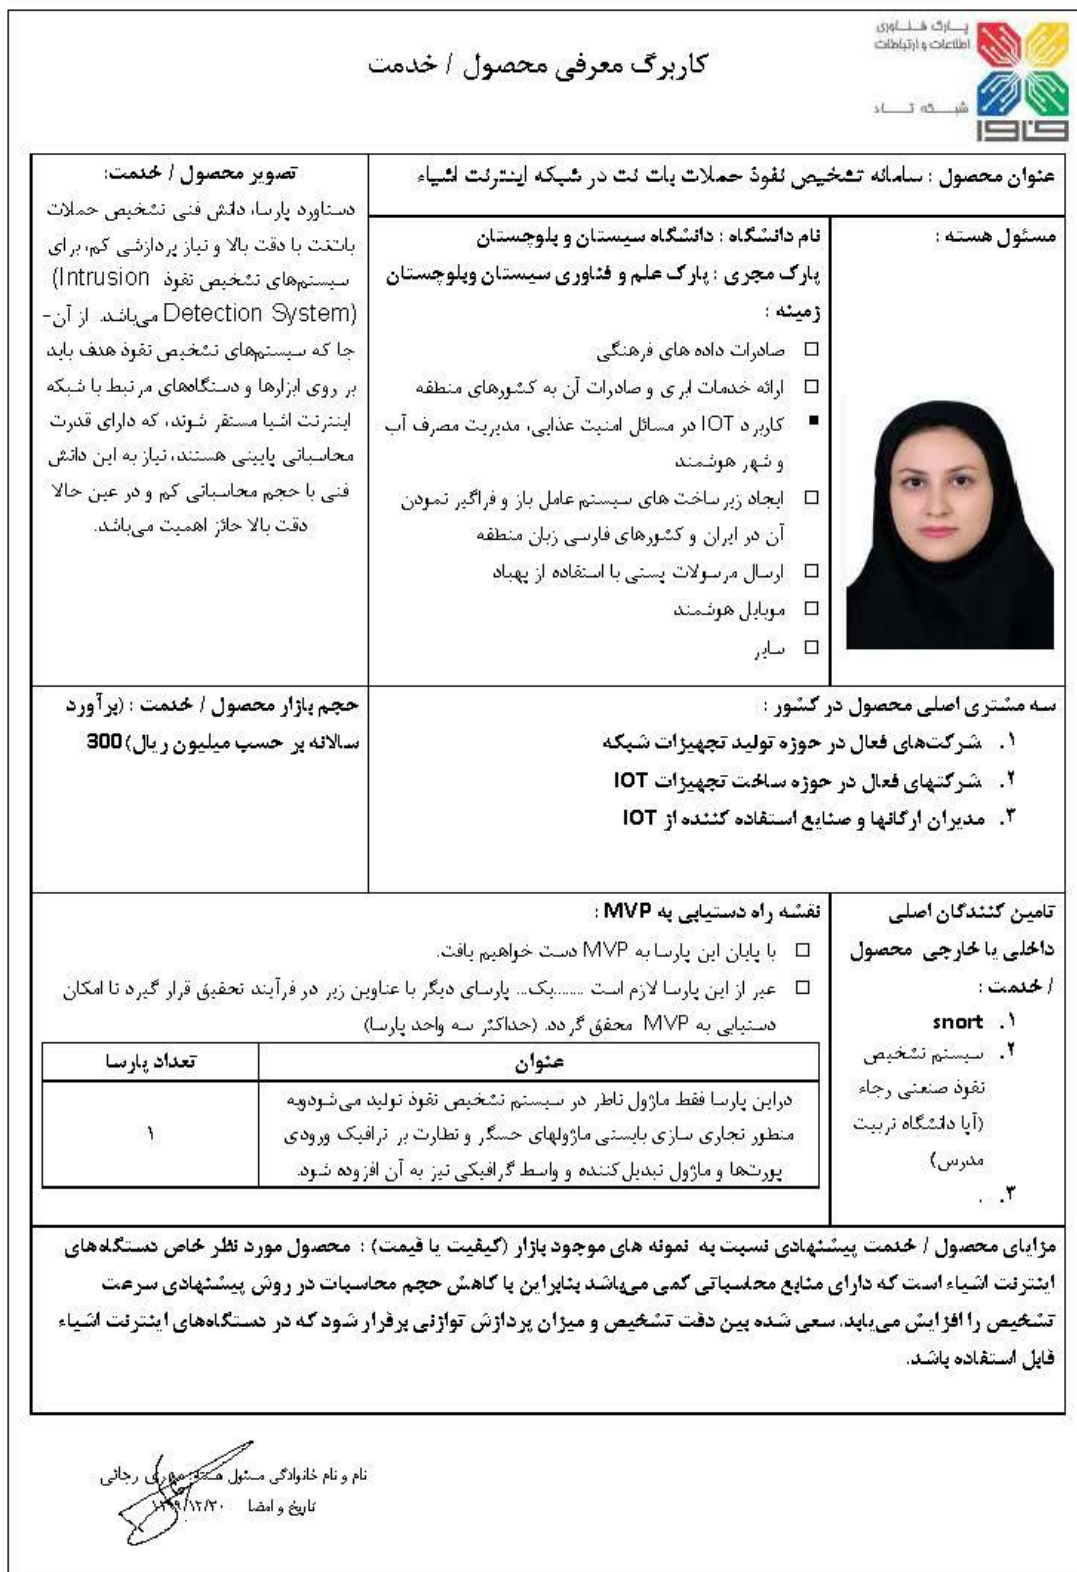 پارک فناوری
اطلاعات و ارتباطات
شبکه تاد
فاوا
کاربرگ معرفی محصول / خدمت
عنوان محصول : سامانه تشخیص نفوذ حملات بات نت در شبکه اینترنت اشیاء
مسئول هسته :
نام دانشگاه : دانشگاه سیستان و بلوچستان
پارک مجری : پارک علم و فناوری سیستان وبلوچستان
زمینه :
□ صادرات داده های فرهنگی
□ ارائه خدمات ابری و صادرات آن به کشورهای منطقه
■ کاربرد IOT در مسائل امنیت غذایی، مدیریت مصرف آب
و شهر هوشمند
□ ایجاد زیرساخت های سیستم عامل باز و فراگیر نمودن
آن در ایران و کشورهای فارسی زبان منطقه
□ ارسال مرسولات پستی با استفاده از پهپاد
□ موبایل هوشمند
□ سایر
تصویر محصول / خدمت:
دستاورد پارسا، دانش فنی تشخیص حملات
باتنت با دقت بالا و نیاز پردازشی کم، برای
سیستم‌های تشخیص نفوذ (Intrusion
Detection System) می‌باشد. از آن-
جا که سیستم‌های تشخیص نفوذ هدف باید
بر روی ابزارها و دستگاه‌های مرتبط با شبکه
اینترنت اشیا مستقر شوند، که دارای قدرت
محاسباتی پایینی هستند، نیاز به این دانش
فنی با حجم محاسباتی کم و در عین حالا
دقت بالا حائز اهمیت می‌باشد.
سه مشتری اصلی محصول در کشور :
۱. شرکت‌های فعال در حوزه تولید تجهیزات شبکه
۲. شرکتهای فعال در حوزه ساخت تجهیزات IOT
۳. مدیران ارگانها و صنایع استفاده کننده از IOT
حجم بازار محصول / خدمت : (برآورد
سالانه بر حسب میلیون ریال) 300
تامین کنندگان اصلی
داخلی یا خارجی محصول
/ خدمت :
۱. snort
۲. سیستم تشخیص
نفوذ صنعتی رجاء
(آپا دانشگاه تربیت
مدرس)
۳. . .
نقشه راه دستیابی به MVP :
□ با پایان این پارسا به MVP دست خواهیم یافت.
□ غیر از این پارسا لازم است .......یک... پارسای دیگر با عناوین زیر در فرآیند تحقیق قرار گیرد تا امکان
دستیابی به MVP محقق گردد. (حداکثر سه واحد پارسا)
عنوان
تعداد پارسا
دراین پارسا فقط ماژول ناظر در سیستم تشخیص نفوذ تولید می‌شودوبه
منظور تجاری سازی بایستی ماژولهای حسگر و نظارت بر ترافیک ورودی
پورت‌ها و ماژول تبدیل‌کننده و واسط گرافیکی نیز به آن افزوده شود.
۱
مزایای محصول / خدمت پیشنهادی نسبت به نمونه های موجود بازار (کیفیت یا قیمت) : محصول مورد نظر خاص دستگاه‌های
اینترنت اشیاء است که دارای منابع محاسباتی کمی می‌باشد بنابراین با کاهش حجم محاسبات در روش پیشنهادی سرعت
تشخیص را افزایش می‌یابد. سعی شده بین دقت تشخیص و میزان پردازش توازنی برقرار شود که در دستگاه‌های اینترنت اشیاء
قابل استفاده باشد.
نام و نام خانوادگی مسئول هسته: رجائی
تاریخ و امضا ۱۳۹۹/۱۲/۲۰